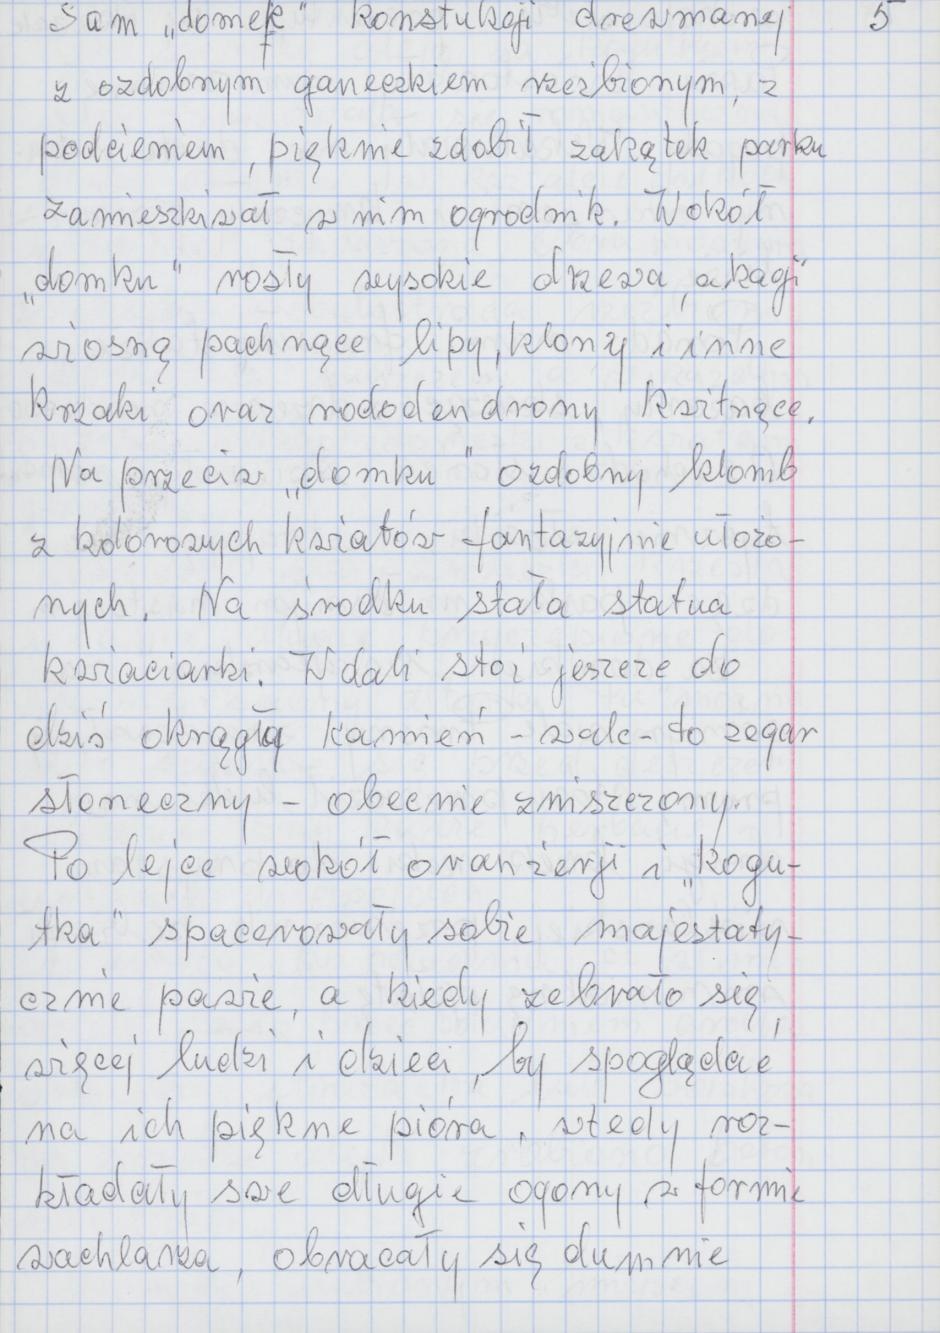 Sam „domek" konstukcji drewnianej 5
z ozdobnym ganeczkiem rzeźbionym, z
podcieniem, pięknie zdobił zakątek parku
zamieszkiwał w nim ogrodnik. Wokół
„domku" rosły wysokie drzewa, akacji
wiosną pachnące lipy, klony i inne
krzaki oraz rododendrony kwitnące.
Na przeciw „domku" ozdobny klomb
z kolorowych kwiatów fantazyjnie ułożo-
nych. Na środku stała statua
kwiaciarki. W dali stoi jeszcze do
dziś okrągłą kamień - walc - to zegar
słoneczny - obecnie zniszczony.
Po lejce wokół oranżerji i „kogu-
tka" spacerowały sobie majestaty-
cznie pawie, a kiedy zebrało się,
więcej ludzi i dzieci, by spoglądać
na ich piękne pióra, wtedy roz-
kładały swe długie ogony w formie
wachlarza, obracały się dumnie